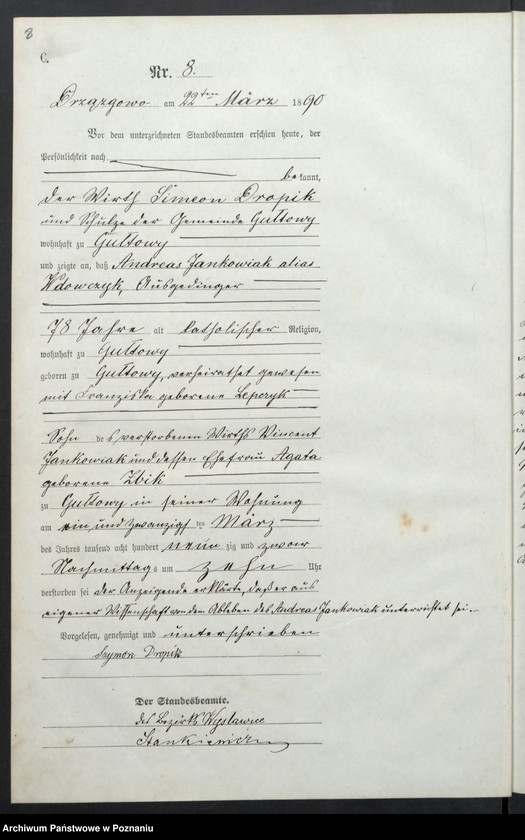 8
C.
Nr. 8.
Drzązgowo am 22ten März 1890
Vor dem unterzeichneten Standesbeamten erschien heute, der
Persönlichkeit nach
bekannt,
der Wirth Simeon Dropik
und Schulze der Gemeinde Gułtowy
wohnhaft zu Gułtowy
und zeigte an, daß Andreas Jankowiak alias
Wdowczyk, Ausgedinger
78 Jahre alt katholischer Religion,
wohnhaft zu Gułtowy
geboren zu Gułtowy, verheirathet gewesen
mit Franziska geborene Lepczyk
Sohn des verstorbenen Wirths Vincent
Jankowiak und dessen Ehefrau Agata
geborene Zbik
zu Gułtowy in seiner Wohnung
am ein und zwanzigsten März
des Jahres tausend acht hundert neunzig und zwar
Nachmittags um zehn Uhr
verstorben sei der Anzeigende erklärte, daß er aus
eigener Wissenschaft von dem Ableben des Andreas Jankowiak unterrichtet sei.
Vorgelesen, genehmigt und unterschrieben
Szymon Dropik
Der Standesbeamte.
des Bezirks Wysławice
Stankiewicz
Archiwum Państwowe w Poznaniu